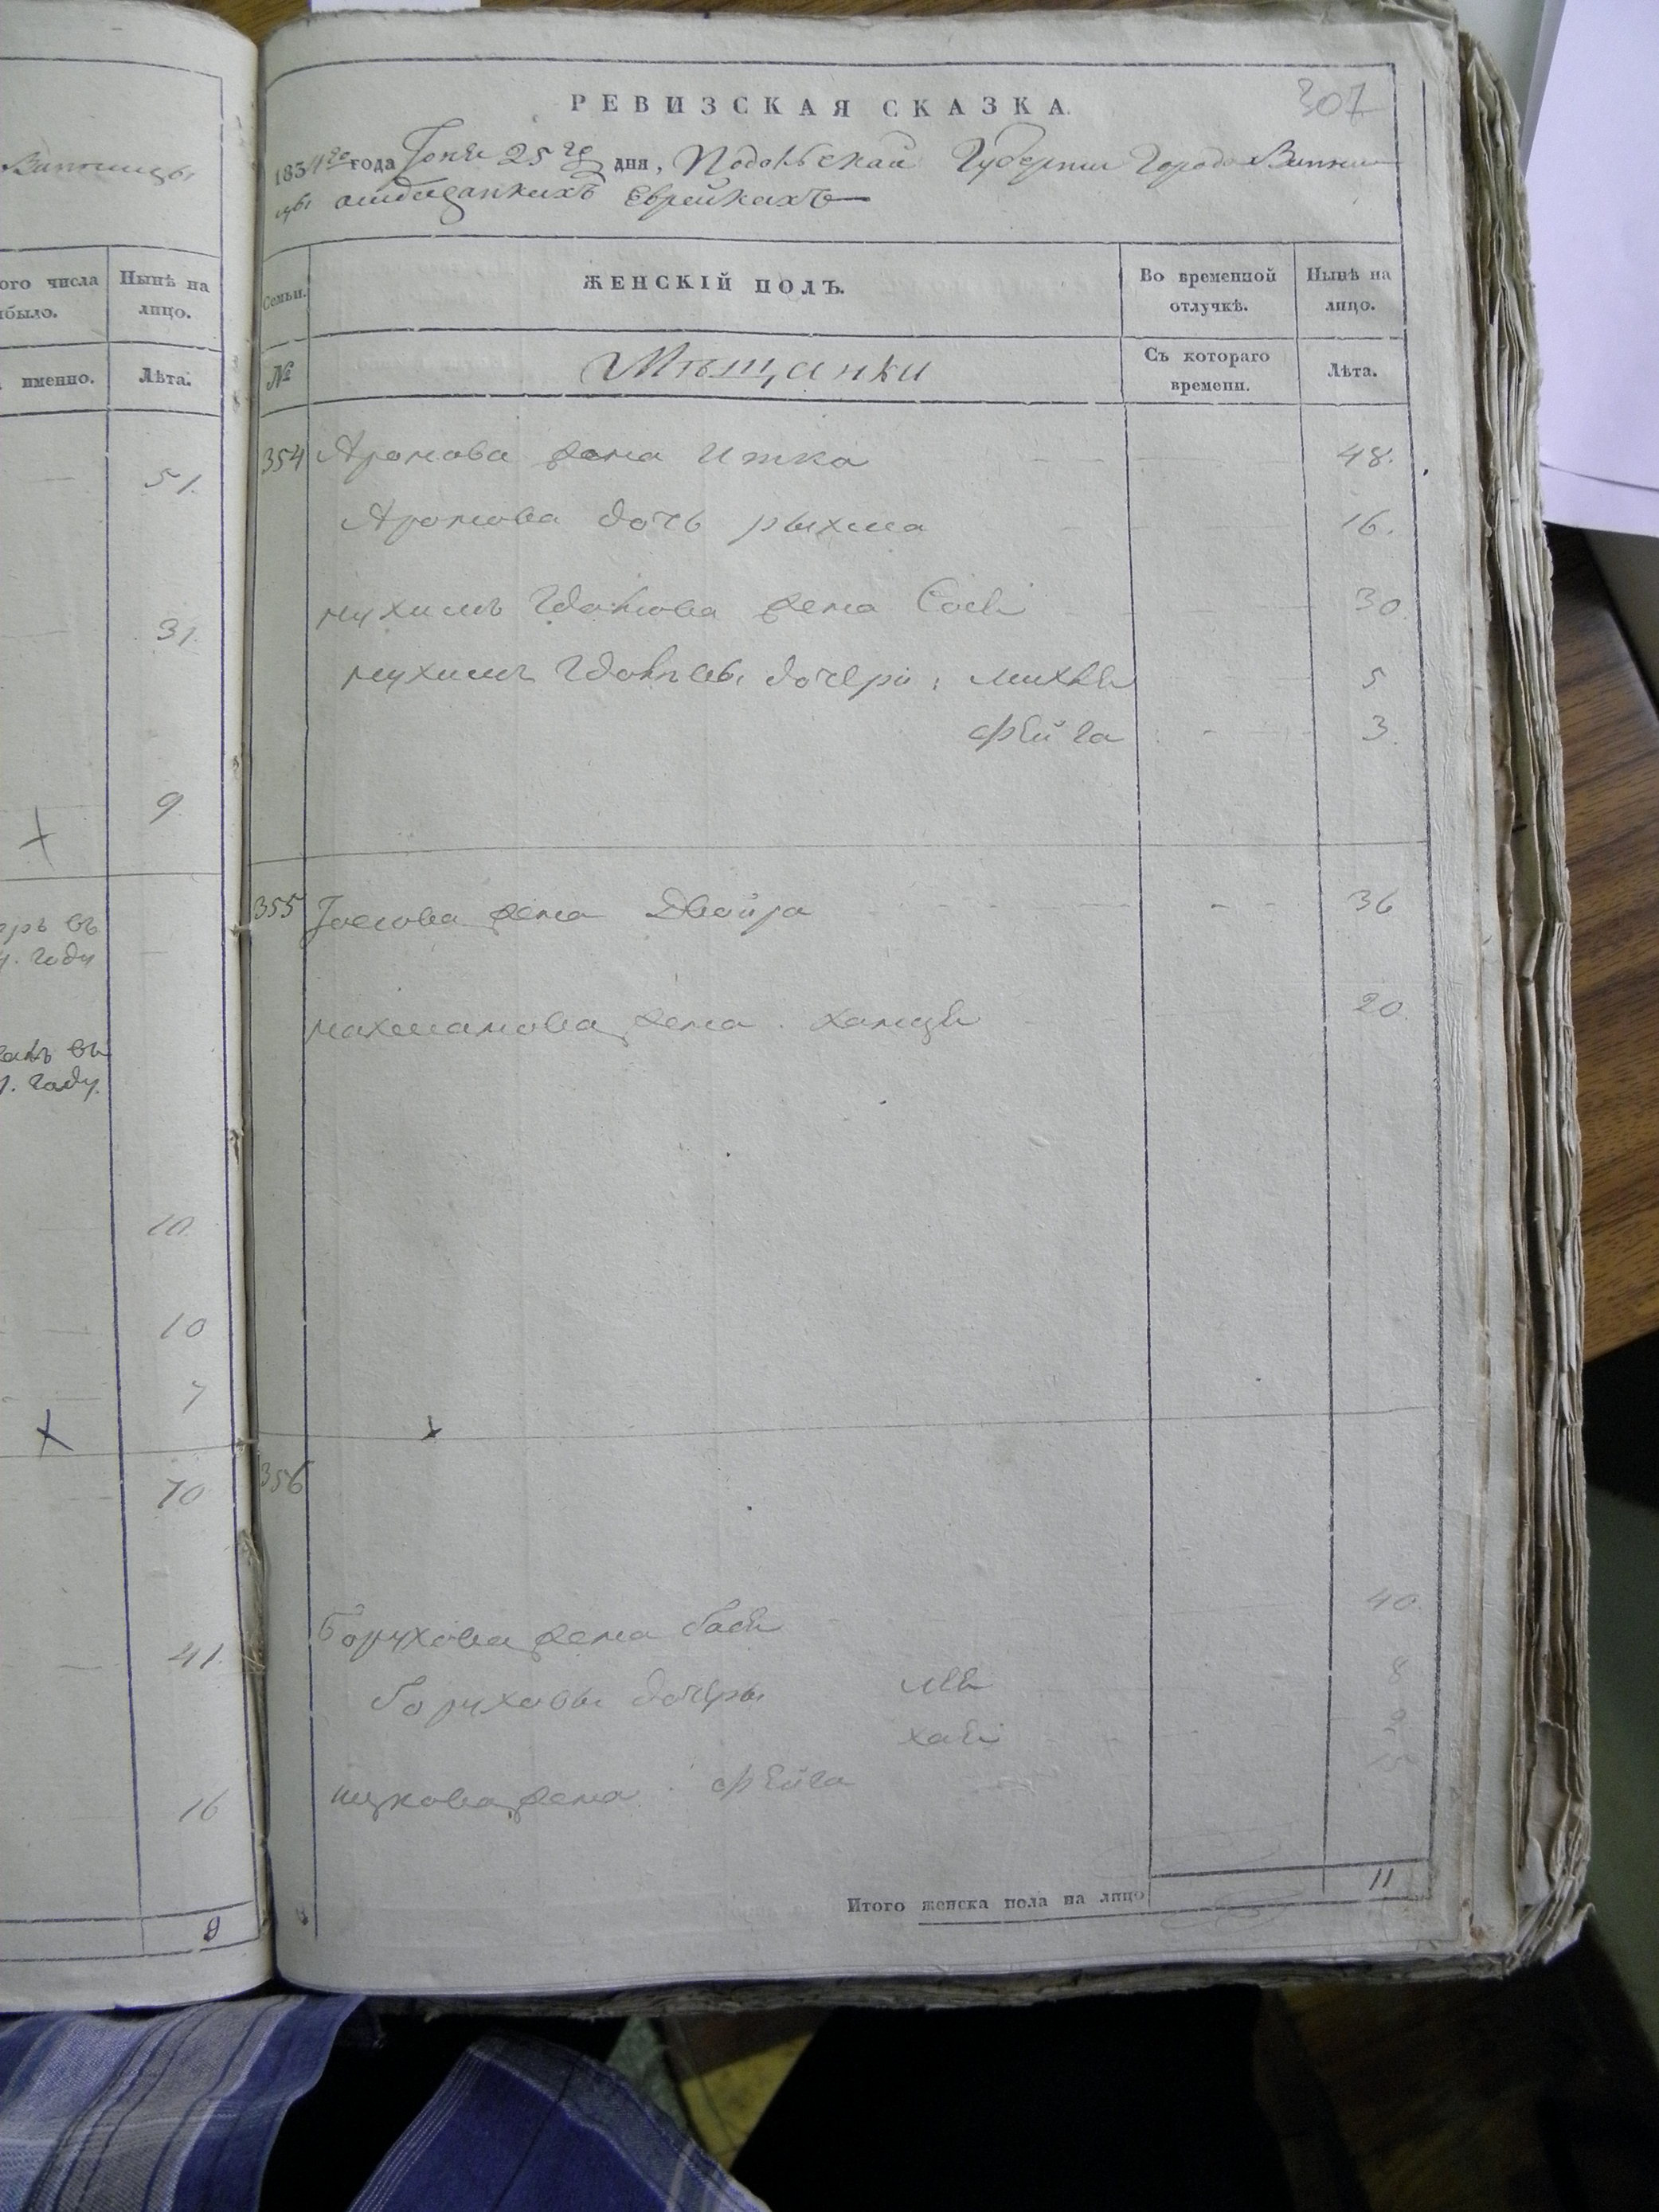 Винницы
ого числа
было.
Нынѣ на
лицо.
именно.
Лѣта.
51.
31.
9
въ
году
въ
году.
10
10
7
70
41.
16
9
307
РЕВИЗСКАЯ СКАЗКА.
1834го года Іюня 25го дня, Подольской Губерніи Города Винни
цы о мѣщанкахъ Еврейкахъ
Семьи.
ЖЕНСКІЙ ПОЛЪ.
Во временной
отлучкѣ.
Нынѣ на
лицо.
№
Мѣщанки
Съ котораго
времени.
Лѣта.
354 Аронова жена Итка 48.
Аронова дочь рыхма 16.
нухимъ жена Сося 30.
нухимъ дочери: 5
Фейга 3.
355 Іосіова жена Двойра 36
нахманова жена ханця 20.
356
Борухова жена бася 40.
Боруховы дочеры лея 8
хая 2
ицкова жена Фейга 15
Итого женска пола на лицо 11